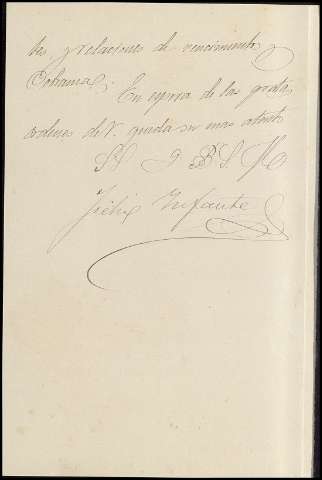 tes y relaciones de vencimientos y
Cobranza.
En espera de las gratas
ordenes de V. queda su mas atento
S. S. Q. B. S. M.
Felix Infante